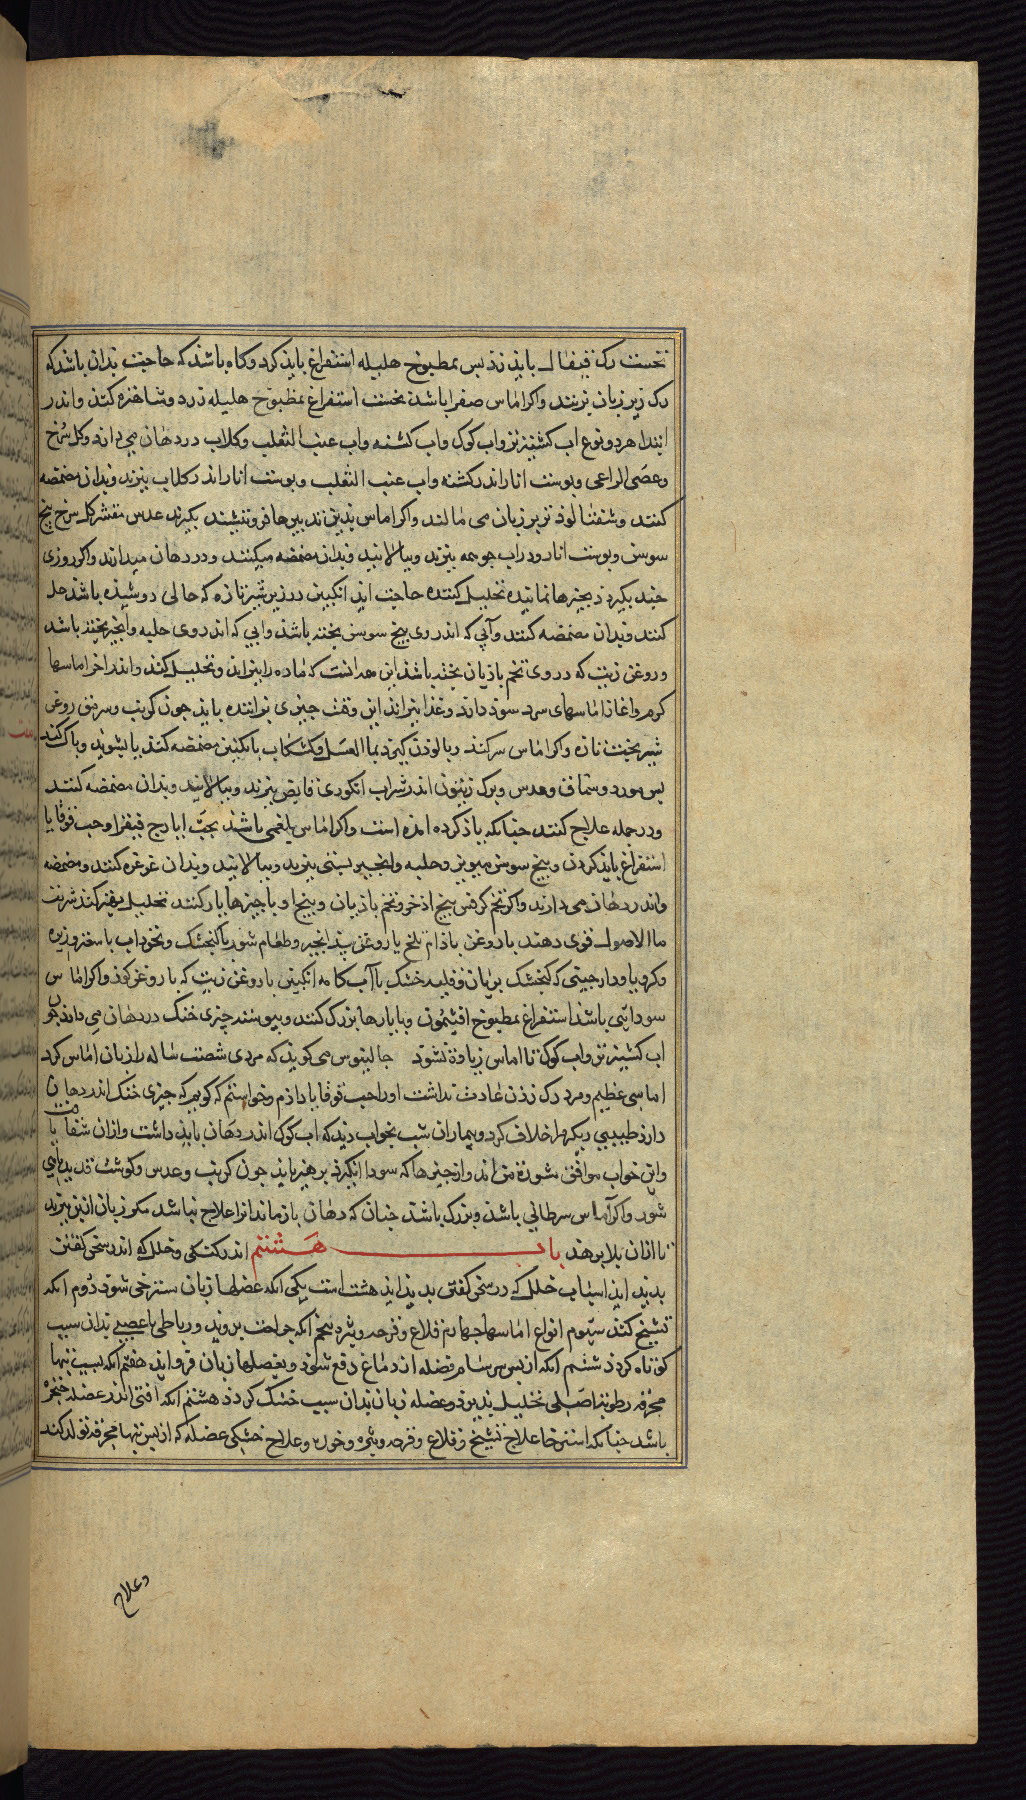 نخست رک قیفال بایذ زذ بس بمطبوخ هلیله استفراغ بایذ کرد وکاه باشذ که حاجت بذان باشذ که
رک زیر زبان بزنند واکر اماس صفرا باشذ نخست استفراغ بمطبوخ هلیله زرد وشاهتره کنند واندر
ابتدا هر دو نوع اب کشنیز تر واب کوک واب کسنه واب عنب الثعلب وکلاب در دهان می دارد وکل سرخ
وعصی الراعی وبوست انار اندر کسنه واب عنب الثعلب وبوست انار اندر کلاب ببزند وبدان مضمضه
کنند وشفتالوذ تر بر زبان می مالند واکر اماس بدین تدبیرها فرو ننشیند بکیرند عدس مقشر کل سرخ بیخ
سوسن وبوست انار ودر اب جو همه ببزند وببالایند وبدان مضمضه میکنند ودر دهان میدارند واکر روزی
جند بکیرد بجیزها تحلیل کننده حاجت ایذ انکبین در شیر تازه که حالی دوشیذه باشذ حل
کنند وبدان مضمضه کنند وآبی که اندر وی بیخ سوسن بخته باشذ وابی که اندر وی حلبه وانجیر بخته باشد
وروغن زیت که در وی تخم باذیان بخته باشذ این همه انست که ماده را ببزاند وتحلیل کند واندر اخر اماسها
کرم واغاز اماسهای سرد سوذ دارد وغذا بیزاند این وقت جیزی بزاننده بایذ جون کرنب وسرمق روغن
شیر بخت تازه واکر اماس سر کند وبالوذن کیرد بما العسل وکشکاب باانکبین مضمضه کند تا بشوید وباک کند
بس مورد وسماق وعدس وبرک زیتون اندر شراب انکوری قابض ببزند وببالایند وبدان مضمضه کنند
ودر جمله علاج کنند جنانکه یاذ کرده امده است واکر اماس بلغمی باشذ بحب ایارج فیقرا وحب قوقایا
استفراغ بایذ کردن وبیخ سوسن مویز وحلبه وانجیر بستی ببزند وببالایند وبدان غرغره کنند ومضمضه
واندر دهان می دارند واکر تخم کرفس بیخ اذخر وتخم باذیان وبیخ او با جیزها یار کنند تحلیل بهتر کند شربت
ما الاصول قوی دهند با روغن باذام تلخ یا روغن بیذ انجیر وطعام شوربا کنجشک ونخوداب با سعتر وزیره
وکرویا ودارجینی که کنجشک بریان وقلیه خشک باآب کامه انکبین با روغن زیت که با روغن کوز واکر اماس
سودایی باشذ استفراغ بمطبوخ افتیمون وبایارها بزرک کنند وبیوسته جیزی خنک در دهان می دارند جون
اب کشنیز تر واب کوک تا اماس زیادة نشود جالینوس می کویذ که مردی شصت ساله را زبان اماس کرد
اماسی عظیم ومرد رک زذن عادت نداشت او را حب قوقایا داذم وخواستم که کویم که جیزی خنک اندر دهان
دارذ طبیبی دیکر مرا خلاف کرد وبیمار ان شب بخواب دید که اب کوک اندر دهان بایذ داشت وازان شفا یافت
واین خواب موافق مشورة من اند واز جیزها که سودا انکیزد برهیز بایذ جون کرنب وعدس وکوشت قدید ماهی
شور واکر آماس سرطانی باشذ وبزرک باشذ جنان که دهان باز ماند انرا علاج نباشد مکر زبان ازین ببرند
تا از ان بلا برهند باب هشتم اندر کنکی وخلل که اندر سخن کفتن
بدید ایذ اسباب خلل که در سخن کفتن بدید ایذ هشت است یکی انکه عضلها زبان سترخی شود دوم انکه
تشنج کند سیوم انواع اماسها جهارم قلاع وقرحه وبثره بنجم انکه جراحت برویذ ورباطی با عصبی بدان سبب
کوتاه کردذ ششم انکه از بس سرسام فضله از دماغ دفع شود وبعضلها زبان فرو ایذ هفتم انکه بسبب تبها
محرقه رطوبت اصلی تحلیل بذیرد وعضله زبان بدان سبب خشک کردذ هشتم انکه افتی اندر عضله حنجره
باشد جنانکه استرخا علاج تشنج وقلاع وقرحه وبثره وخوره وعلاج خشکی عضله که از بس تبها محرقه تولد کند
وعلاج